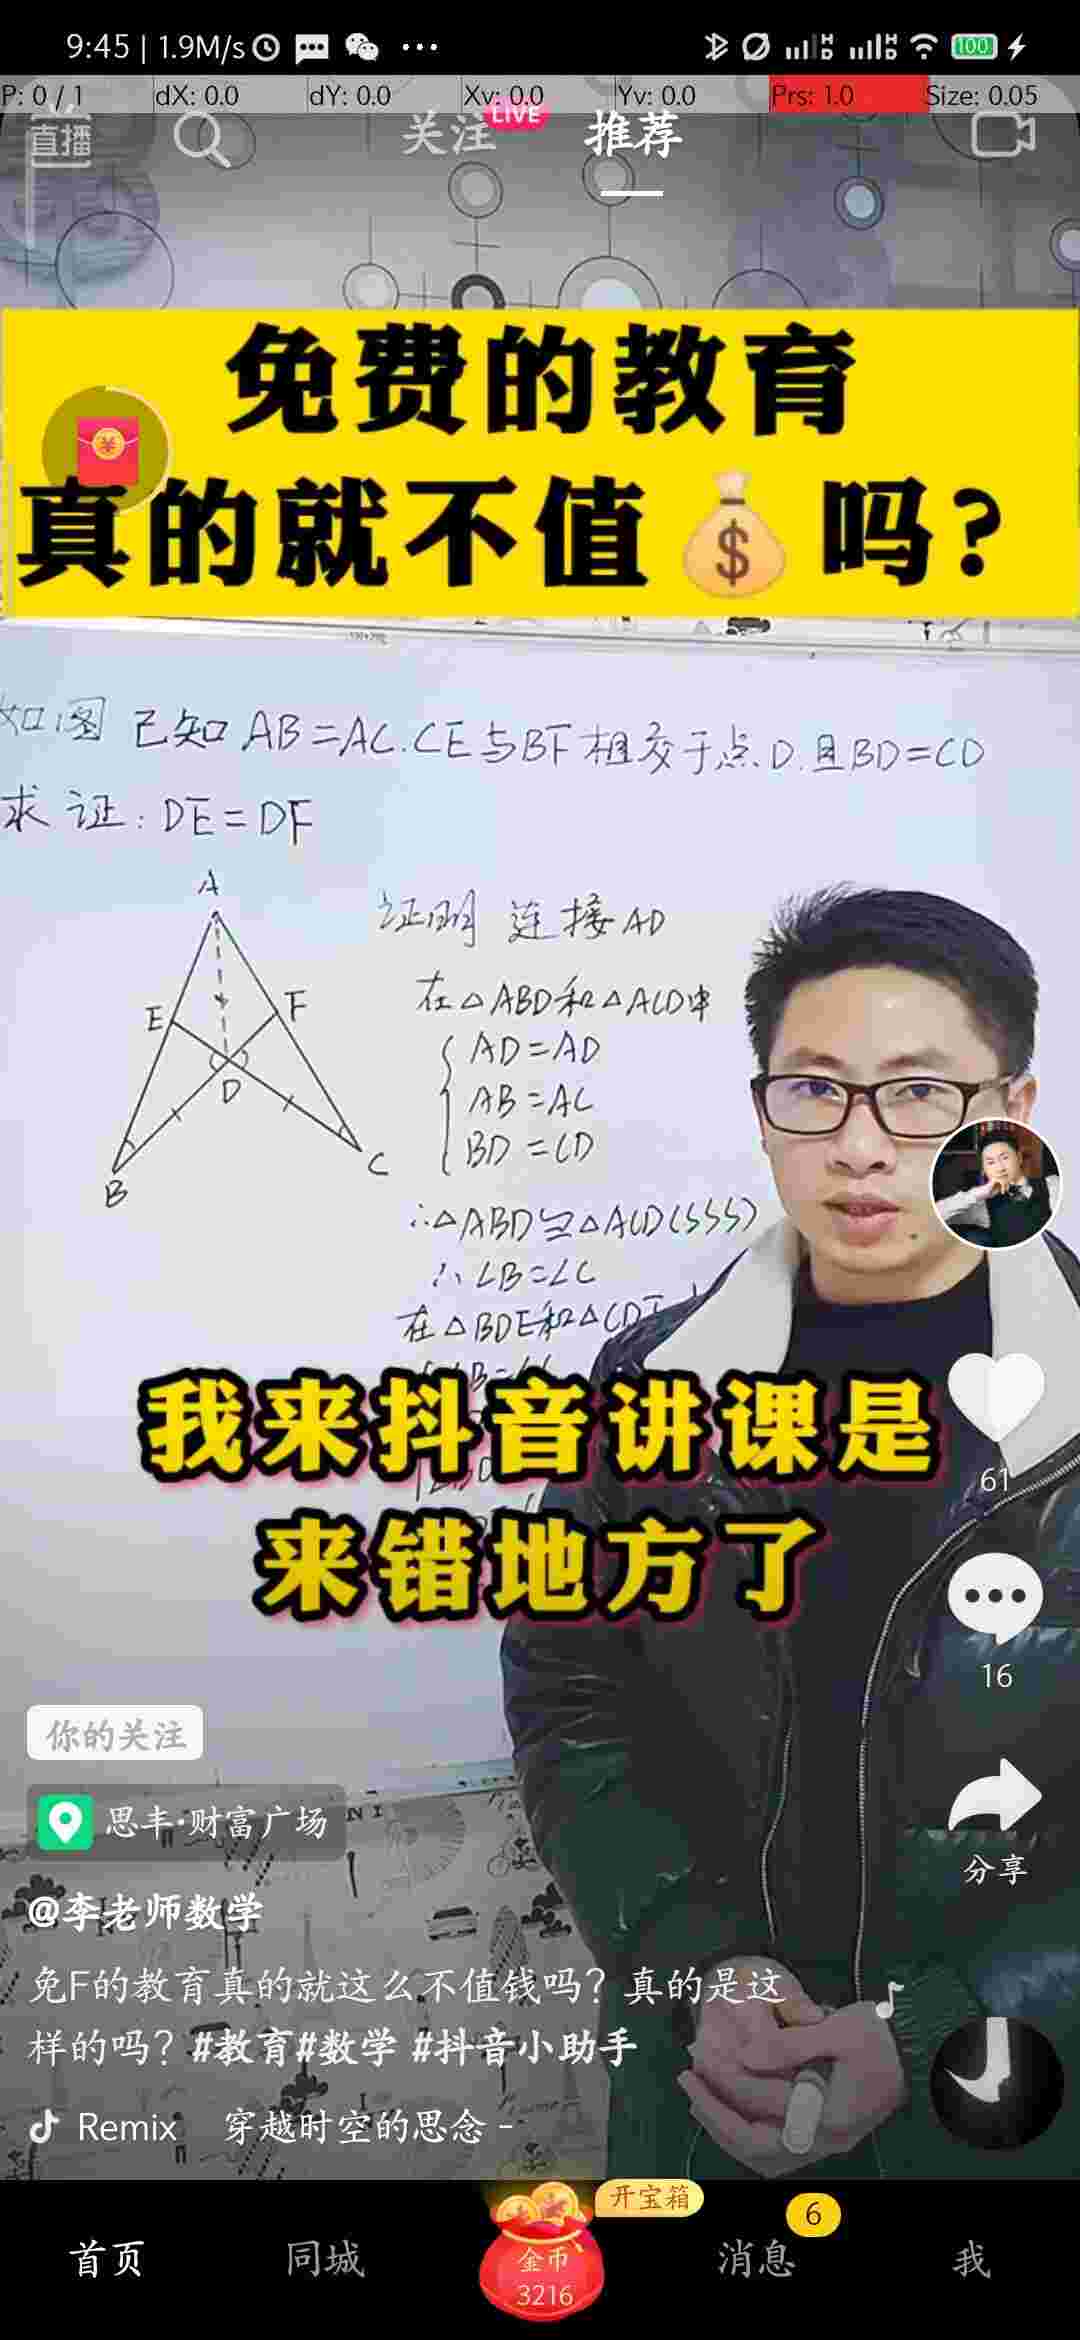 9:45 | 1.9M/s
100
P: 0 / 1 dX: 0.0 dY: 0.0 Xv: 0.0 Yv: 0.0 Prs: 1.0 Size: 0.05
直播 关注 LIVE 推荐
免费的教育
真的就不值 吗?
如图 已知AB=AC.CE与BF相交于点D.且BD=CD
求证:DE=DF
A
E
F
D
B
C
证明 连接AD
在△ABD和△ACD中
AD=AD
AB=AC
BD=CD
∴△ABD≌△ACD(SSS)
∴∠B=∠C
在△BDE和△CDF
我来抖音讲课是
来错地方了
61
16
分享
你的关注
思丰·财富广场
@李老师数学
免F的教育真的就这么不值钱吗？真的是这
样的吗？#教育#数学 #抖音小助手
Remix 穿越时空的思念 -
开宝箱
首页 同城 金币 3216 消息 6 我